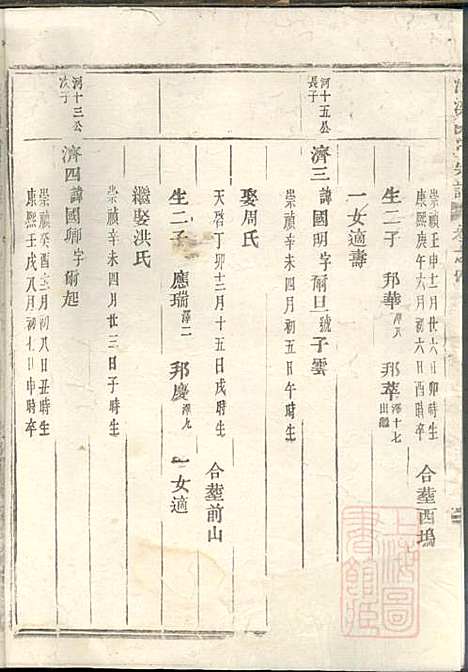 崇禎壬申十二月廿六日卯時生
康熙庚午六月初六日酉時卒
合塟西塢
生二子 邦華澤八 邦萃澤十七出繼
一女適壽
河十五公長子
濟三諱國明字爾旦號子雲
崇禎辛未四月初五日午時生
娶周氏
天啓丁卯十二月十五日戌時生
合塟前山
生二子 應瑞澤二 邦慶澤九 一女適
繼娶洪氏
崇禎辛未四月廿三日子時生
河十三公次子
濟四諱國卿字爾起
崇禎癸酉三月初八日丑時生
康熙壬戌八月初七日申時卒
上海圖書館姫